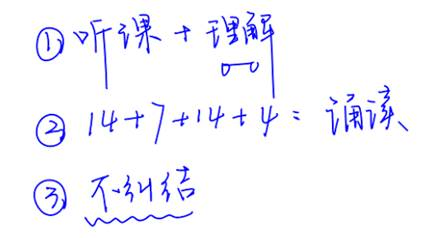 ① 听课 + 理解
② 14+7+14+4 = 诵读、
③ 不纠结